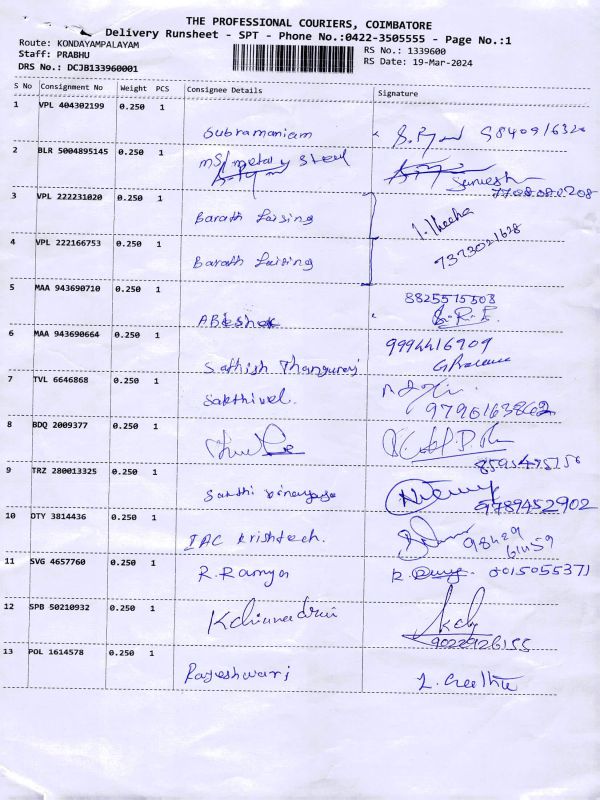 THE PROFESSIONAL COURIERS, COIMBATORE
Delivery Runsheet - SPT - Phone No.:0422-3505555 - Page No.:1
Route: KONDAYAMPALAYAM
RS No.: 1339600
Staff: PRABHU
RS Date: 19-Mar-2024
DRS No.: DCJB133960001
S No Consignment No Weight PCS Consignee Details Signature
1 VPL 404302199 0.250 1
Subramaniam
2 BLR 5004895145 0.250 1
M/S metal y steel
Suresh
3 VPL 222231020 0.250 1
Barath Laising
4 VPL 222166753 0.250 1
Barath Laising
7373021628
5 MAA 943690710 0.250 1
8825515503
6 MAA 943690664 0.250 1
9994416909
Sathish Thangaraj
7 TVL 6646868 0.250 1
Sakthivel.
8 BDQ 2009377 0.250 1
9 TRZ 280013325 0.250 1
Sakthi vinayaga
9789452902
10 OTY 3814436 0.250 1
IAC Krishtech.
11 SVG 4657760 0.250 1
R. Ramya
12 SPB 50210932 0.250 1
9022926155
13 POL 1614578 0.250 1
Rajeshwari
L. Geetha